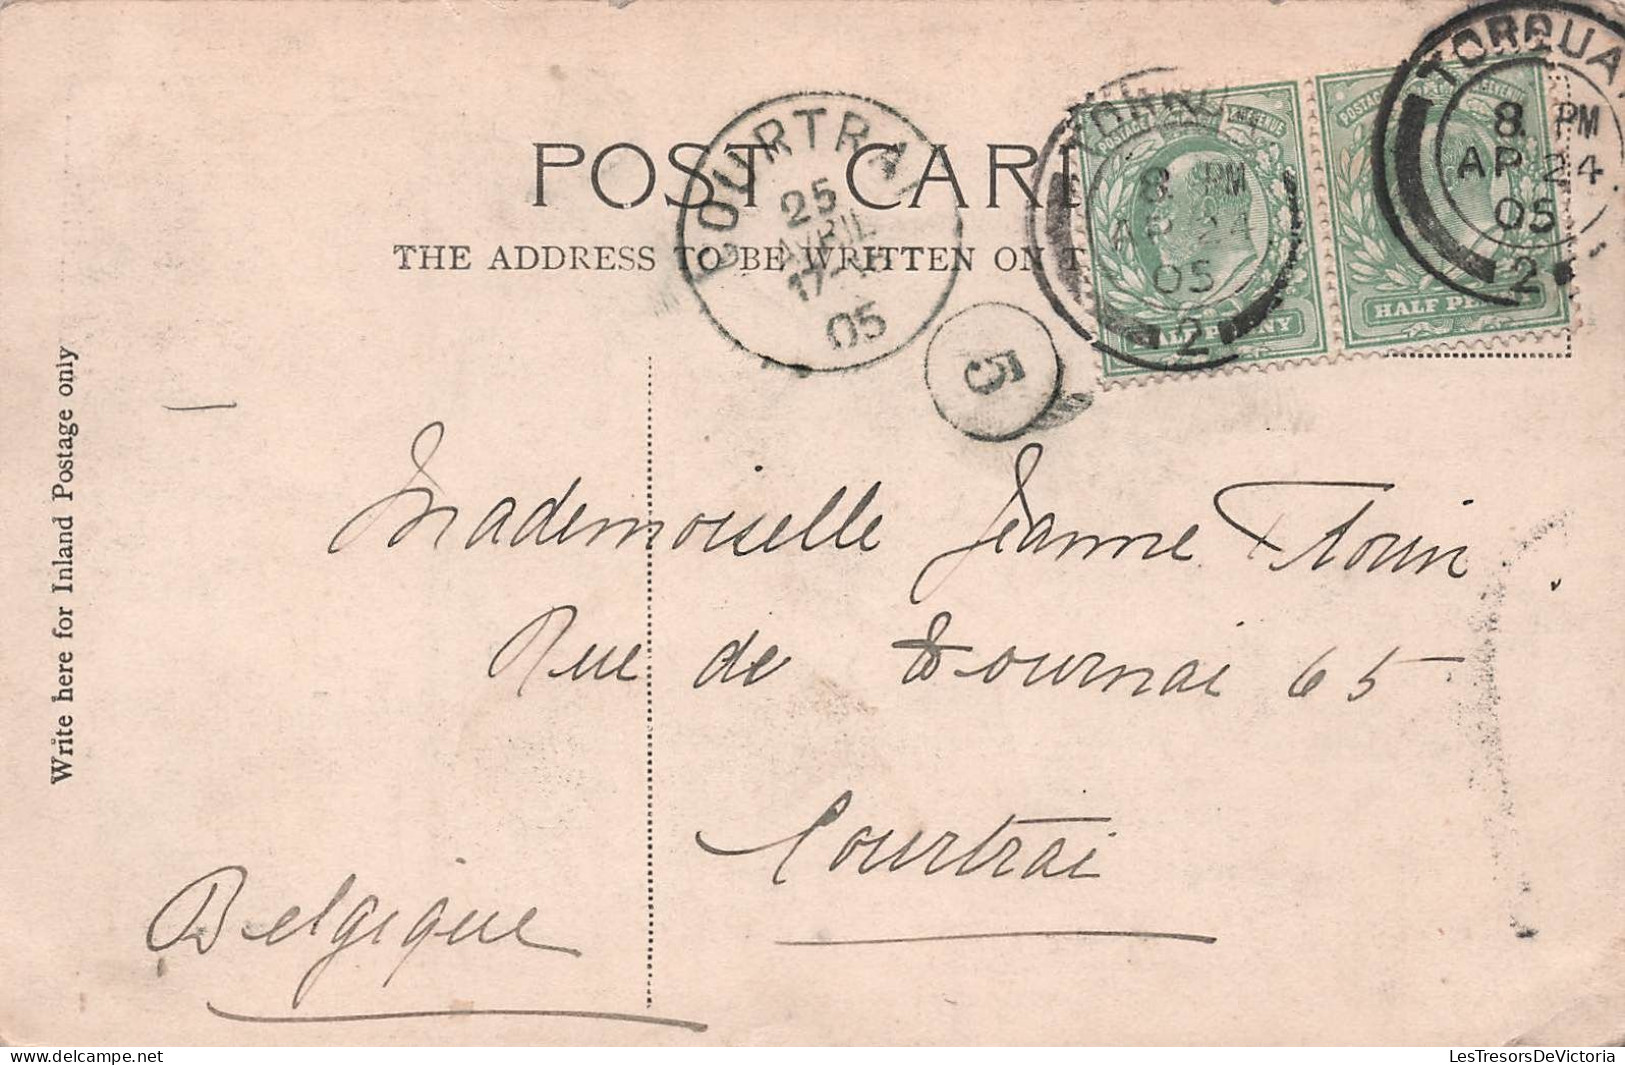 POST CARD
THE ADDRESS TO BE WRITTEN ON T
COURTRAI
25
AVRIL
17-
05
5
TORQUAY
8 PM
AP 24
05
2
POSTAGE REVENUE
HALF PENNY
TORQUAY
8 PM
AP 24
05
2
POSTAGE REVENUE
HALF PENNY
Write here for Inland Postage only
Mademoiselle Jeanne Florin
Rue de Tournai 65
Courtrai
Belgique
LesTresorsDeVictoria
delcampe.net